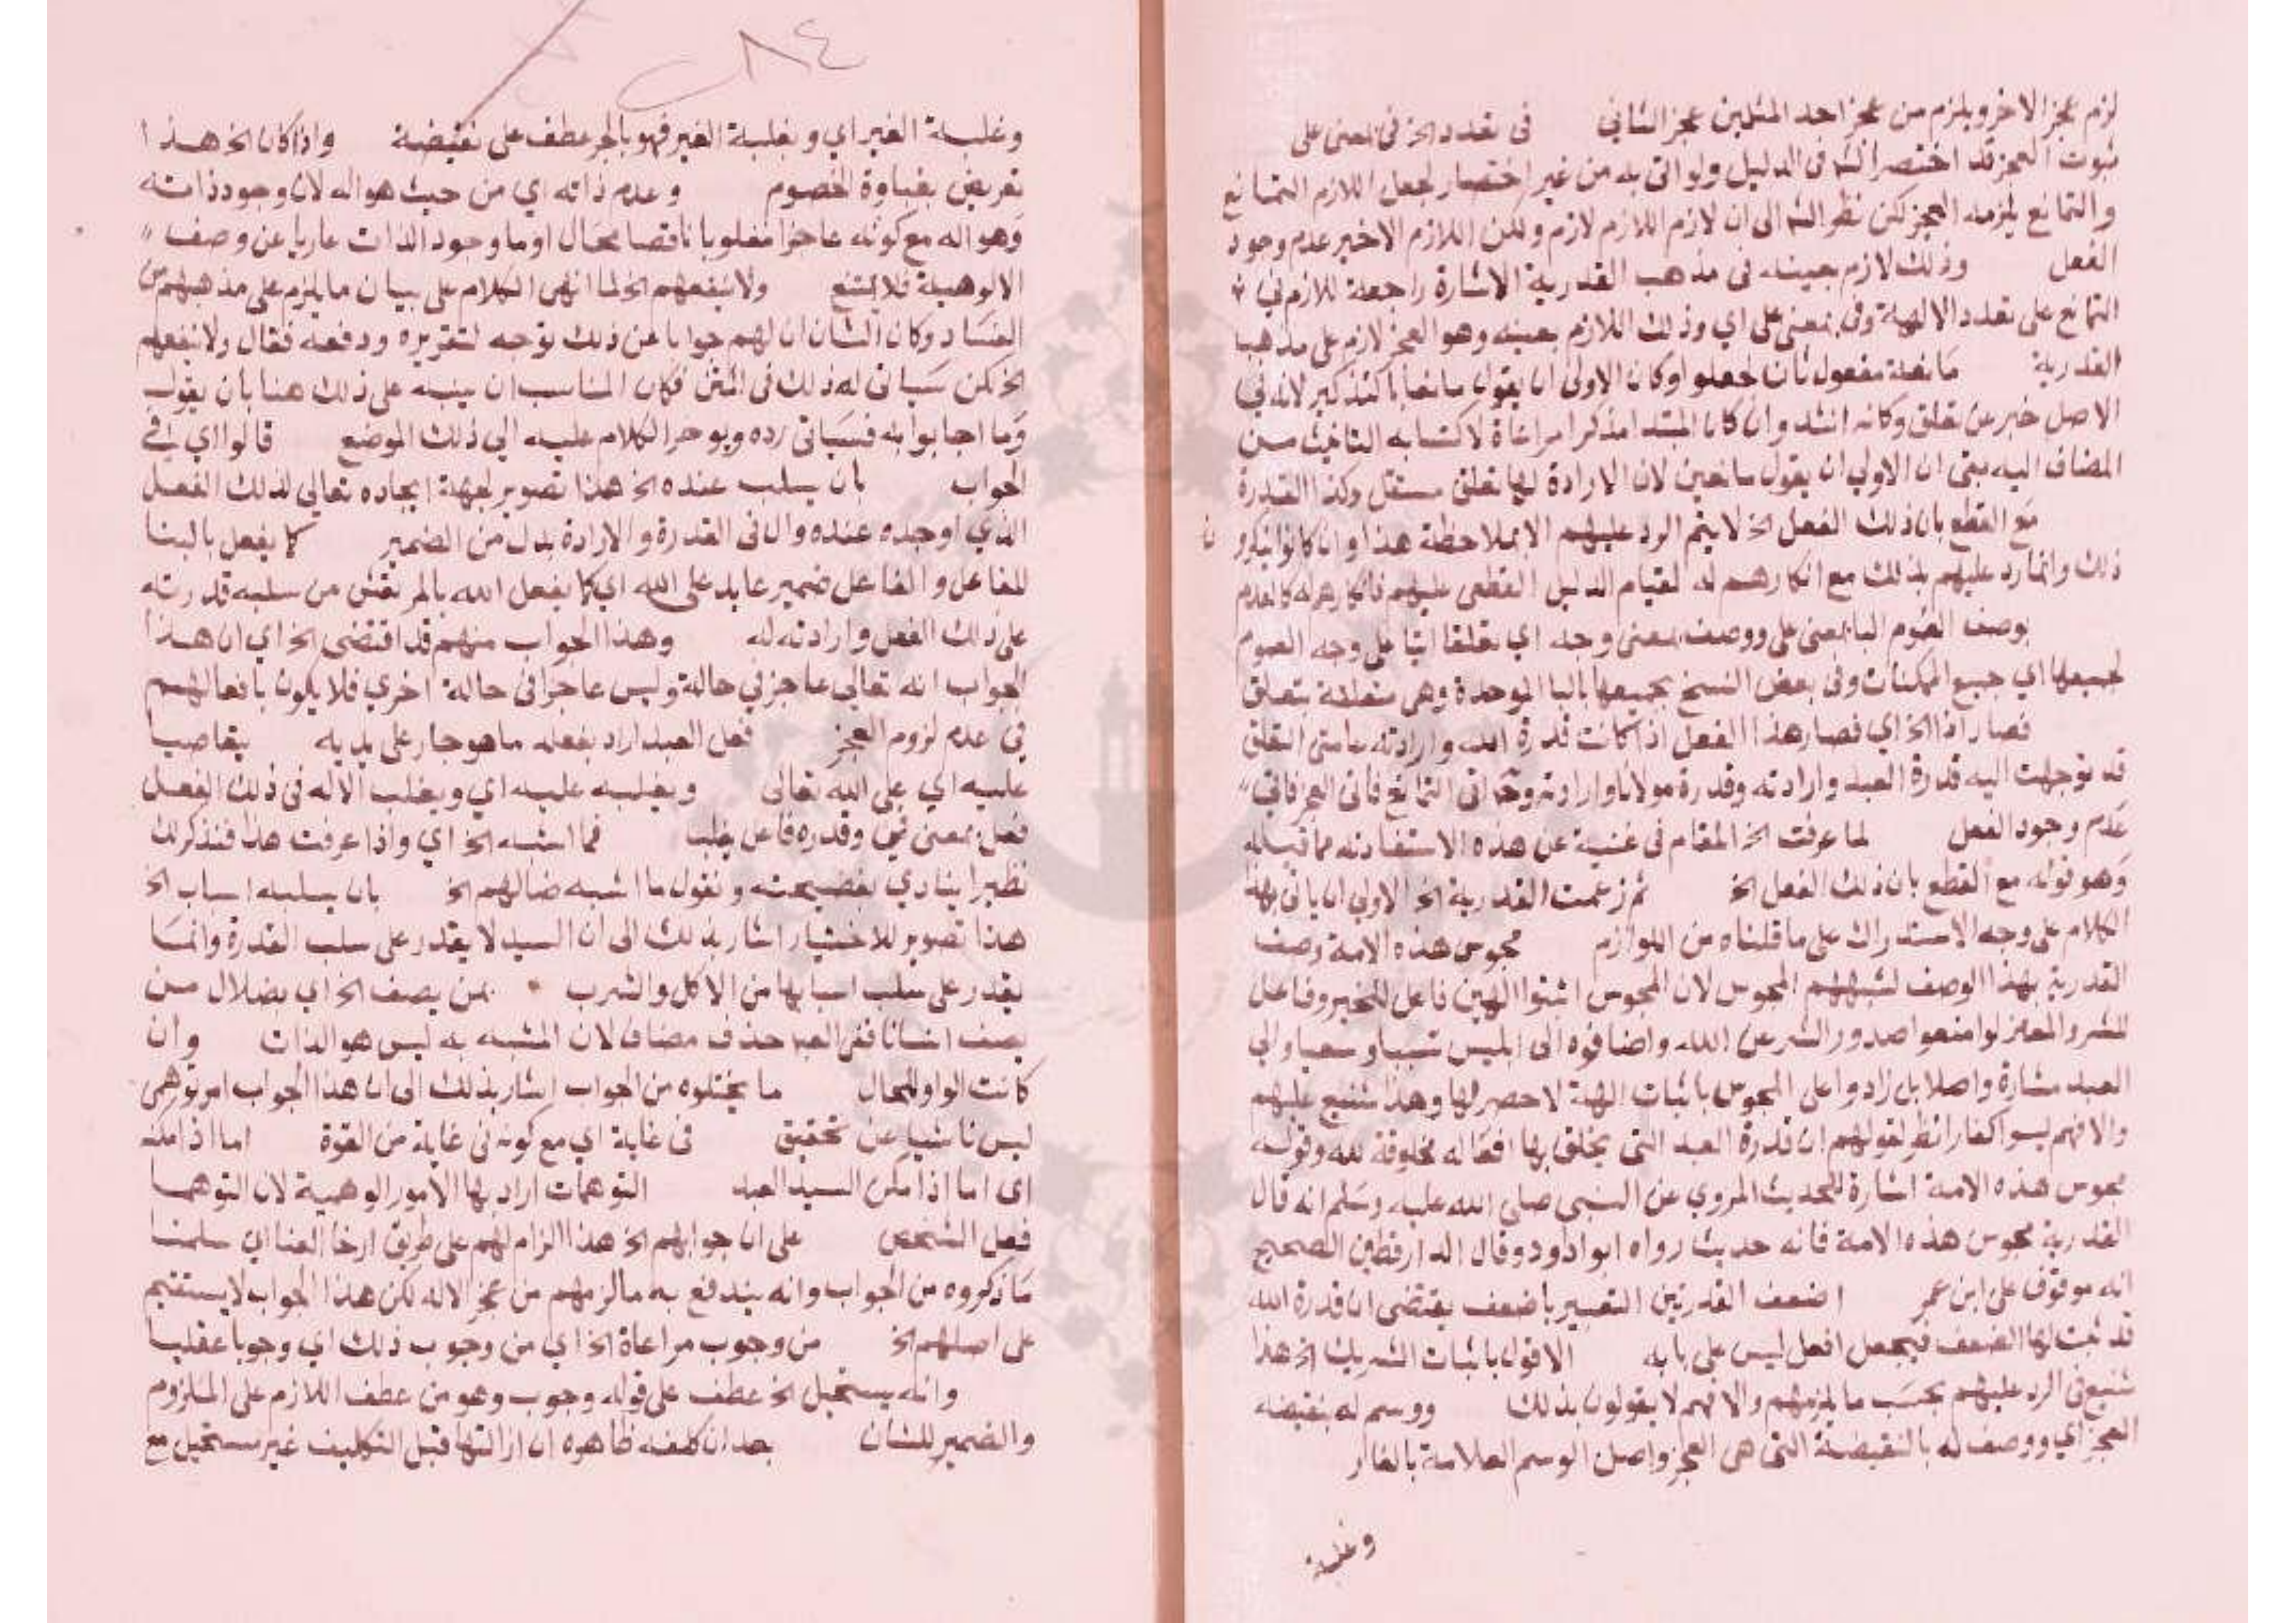 لزم عجز الاخر ويلزم من عجز احد المثلين عجز الثاني في تعدد الخ في بمعنى على
ثبوت العجز قد اختصر الش في الدليل ولو اتى به من غير اختصار لجعل اللازم التمانع
والتمانع يلزمه العجز لكن نظر الش الى ان لازم اللازم لازم ولكن اللازم الاخير عدم وجود
الفعل وذلك لازم بعينه في مذهب القدرية الاشارة راجعة للازم في
التمانع على تعدد الالهة وفي بمعنى على اي وذلك اللازم بعينه وهو العجز لازم على مذهب
القدرية مانعة مفعول ثان لجعلوا وكان الاولى ان يقول مانعا بالتذكير لانه في
الاصل خبر عن تعلق وكانه انث وان كان المبتدا مذكرا مراعاة لاكتسابه التانيث من
المضاف اليه بقى ان الاولى ان يقول مانعين لان الارادة لها تعلق مستقل وكذا القدرة
مع القطع بان ذلك الفعل الخ لا يتم الرد عليهم الا بملاحظة هذا وان كانوا ينكرون
ذلك وانما رد عليهم بذلك مع انكارهم له لقيام الدليل القطعي عليهم فانكارهم له كالعدم
بوصف العموم البا بمعنى على ووصف بمعنى وجه اي تعلقا اتيا على وجه العموم
لجميعها اي جميع الممكنات وفي بعض النسخ بجميعها بالبا الموحدة وهي متعلقة بتعلق
فصار اذا الخ اي فصار هذا الفعل اذا كانت قدرة الله وارادته عامتي التعلق
قد توجهت اليه قدرة العبد وارادته وقدرة مولانا وارادته وح اتى التمانع فاتى العجز فاتى
عدم وجود الفعل لما عرفت الخ المقام في غنية عن هذه الاستفادته مما قبله
وهو قوله مع القطع بان ذلك الفعل الخ ثم زعمت القدرية الخ الاولى ان ياتي بهذا
الكلام على وجه الاستدراك على ما قلناه من اللوازم مجوس هذه الامة وصف
القدرية بهذا الوصف لشبههم المجوس لان المجوس اثبتوا الهين فاعل للخير وفاعل
للشر والمعتزلوا منعوا صدور الشر عن الله واضافوه الى ابليس تسببا وسعيا والى
العبد مشارة واصلا بل زادوا على المجوس باثبات الهة لا حصر لها وهذا تشنيع عليهم
والا فهم ليسوا كفارا نظر لقولهم ان قدرة العبد التي يخلق بها افعاله مخلوقة لله وقوله
مجوس هذه الامة اشارة للحديث المروي عن النبي صلى الله عليه وسلم انه قال
القدرية مجوس هذه الامة فانه حديث رواه ابو داود وقال الدارقطني الصحيح
انه موقوف على ابن عمر اضعف القدرتين التعبير باضعف يقتضى ان قدرة الله
قد ثبت لها الضعف فيجعل افعل ليس على بابه الا قول باثبات الشريك الخ هذا
تشنيع في الرد عليهم بحسب ما لزمهم والا فهم لا يقولون بذلك ووسم له بنقيضه
العجز اي ووصف له بالنقيضة التي هي العجز واصل الوسم العلامة بالنار
وغلبة
٨٤
وغلبة الغير اي وبغلبة الغير فهو بالجر عطف على نقيضة واذا كان الخ هذا
تعريض بغباوة الخصوم وعدم ذاته اي من حيث هو اله لان وجود ذاته
وهو اله مع كونه عاجزا مغلوبا ناقصا محال اوما وجود الذات عاريا عن وصف
الالوهية فلا يمتنع ولا ينفعهم الخ لما انهى الكلام على بيان ما يلزم على مذهبهم من
الفساد وكان الشان ان لهم جوابا عن ذلك توجه لتقريره ودفعه فقال ولا ينفعهم
الخ لكن سياتى له ذلك في المتن فكان المناسب ان ينبه على ذلك هنا بان يقول
وما اجابوا به فسياتى رده ويوخر الكلام عليه الى ذلك الموضع قالوا اي في
الجواب بان يسلب عنده الخ هذا تصوير لجهة ايجاده تعالى لذلك الفعل
الذي اوجده عنده وال في القدرة والارادة بدل من الضمير كما يفعل بالبنا
للفاعل والفاعل ضمير عايد على الله اي كما يفعل الله بالمرتعش من سلبه قدرته
على ذلك الفعل وارادته له وهذا الجواب منهم قد اقتضى الخ اي ان هذا
الجواب انه تعالى عاجز في حالة وليس عاجزا في حالة اخرى فلا يكون بافعالهم
في عدم لزوم العجز فعل العبد اراد بفعله ما هو جار على يديه يقاصيا
عليه اي على الله تعالى ويغلبه عليه اي ويغلب الاله في ذلك الفعل
فعلى بمعنى في وقدره فاعل يغلب فما اشبه الخ اي واذا عرفت هذا فنذكر لك
نظيرا ينادي بفضيحته ونقول ما اشبه ضالهم الخ بان يسلبه اسباب الخ
هذا تصوير للاختيار اشار بذلك الى ان السيد لا يقدر على سلب القدرة وانما
يقدر على سلب اسبابها من الاكل والشرب بمن يصف الخ اي بضلال من
يصف انسانا ففي العبد حذف مضاف لان المشبه به ليس هو الذات وان
كانت الواو للحال ما يختلوه من الجواب اشار بذلك الى ان هذا الجواب امر توهمى
ليس ناشيا عن تحقيق في غاية اي مع كونه في غاية من القوة اما اذ امكنه
اي اما اذا مكن السيد العبد التوهمات اراد بها الامور الوهمية لان التوهما
فعل الشخص على ان جوابهم الخ هذا الزام لهم على طريق ارخا العنا اي سلمنا
ما ذكروه من الجواب وانه يندفع به ما لزمهم من عجز الاله لكن هذا الجواب لا يستقيم
على اصلهم الخ من وجوب مراعاة الخ اي من وجوب ذلك اي وجوبا عقليا
وانه يستحيل الخ عطف على قوله وجوب وهو من عطف اللازم على الملزوم
والضمير للشان بعد ان كلفه ظاهره ان ازالتها قبل التكليف غير مستحيل مع